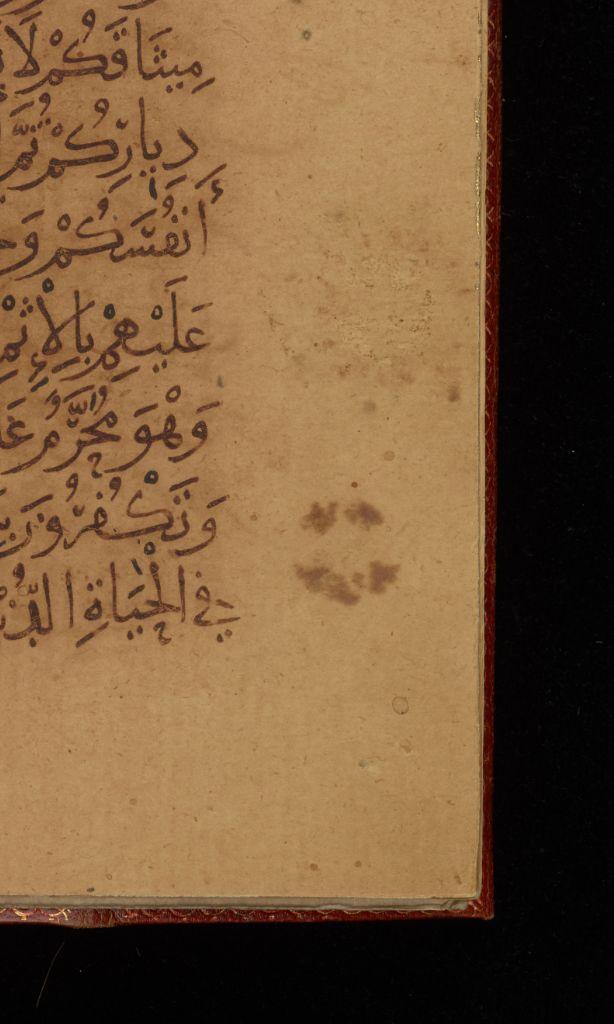 مِيثَاقَكُمْ لَا
دِيارِكُمْ ثُمَّ
أَنفُسَكُمْ وَ
عَلَيْهِمْ بِالْإِثْمِ
وَهْوَ مُحَرَّمٌ عَ
وَتَكْفُرُونَ بِ
فِي الْحَيَاةِ الدُّنْ